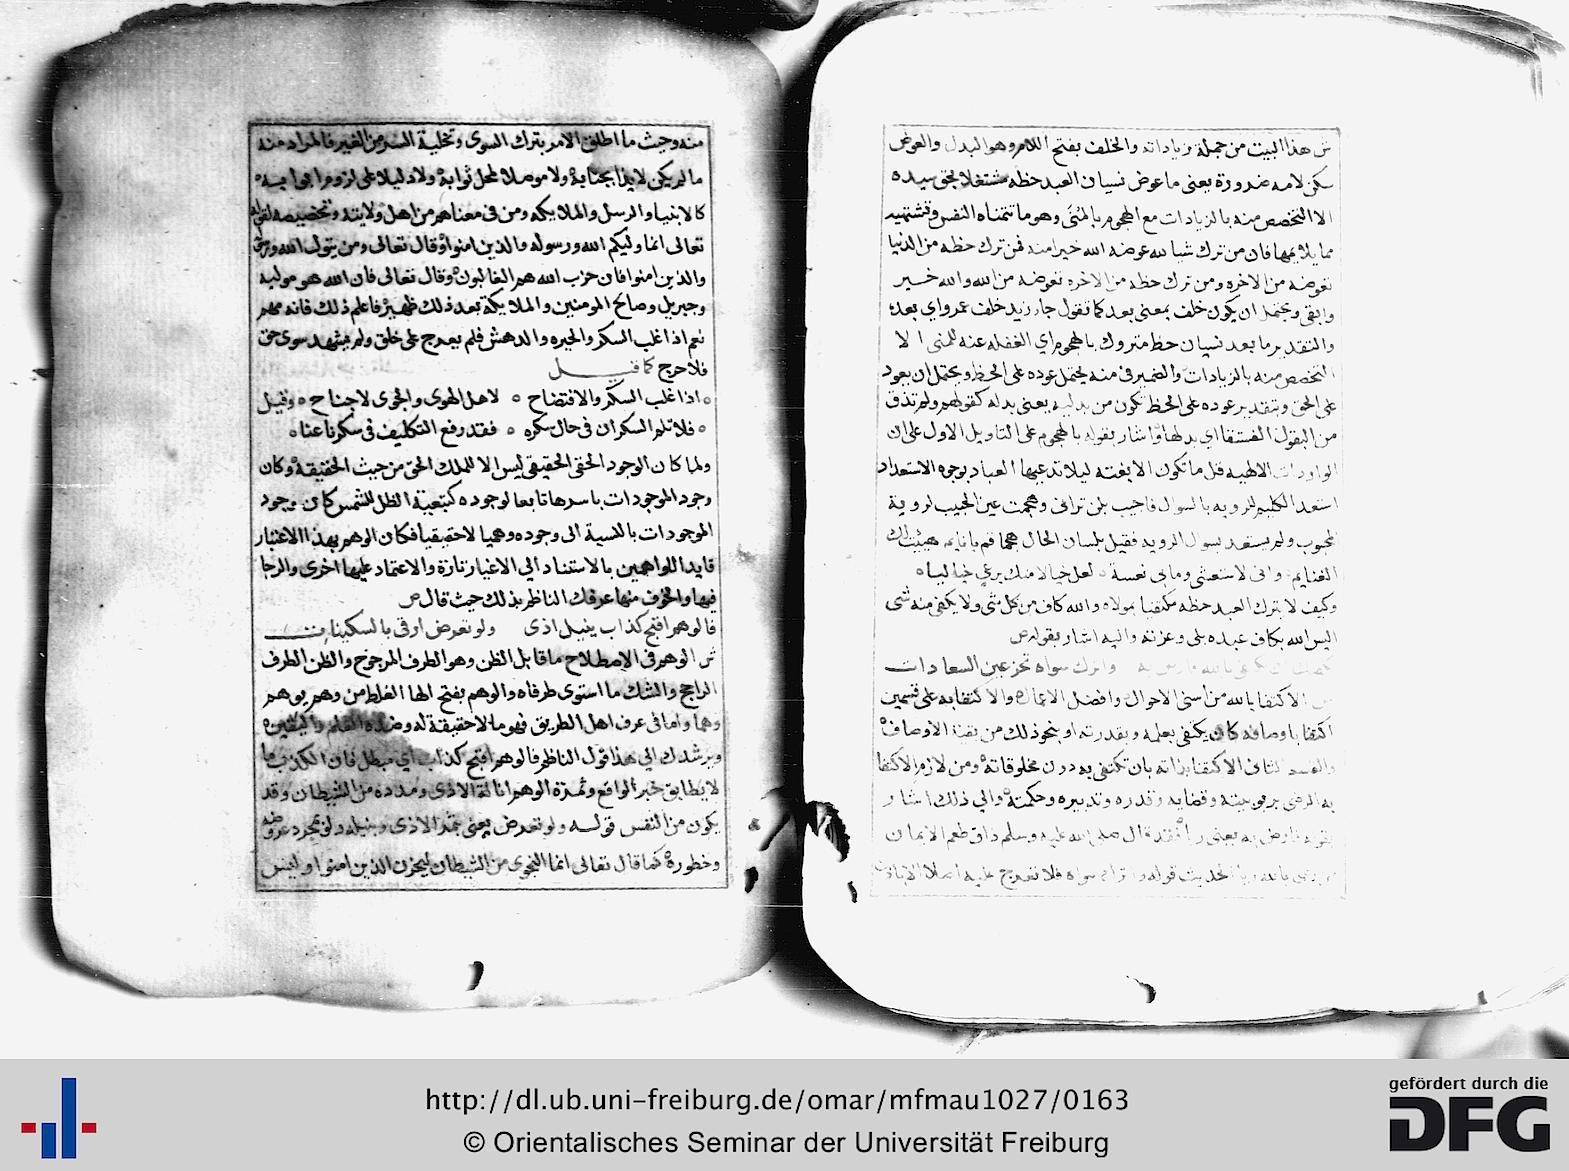 ش هذا البيت من جملة زياداته والخلف بفتح اللام وهو البدل والعوض
سكن لامه ضرورة يعنى ما عوض نسيان العبد حظه مشتغلا بحق سيده
الا التخصص منه بالزيادات مع الهجوم بالمنى وهو ما تتمناه النفس وتشتهيه
مما يلايمها فان من ترك شيا لله عوضه الله خيرا منه فمن ترك حظه من الدنيا
تعوضه من الاخره ومن ترك حظه من الاخره تعوضه من الله والله خير
وابقى ويحتمل ان يكون خلف بمعنى بعد كما تقول جا زيد خلف عمرو اي بعده
والتقدير ما بعد نسيان حظ متروك بالهجوم اي الغفله عنه للمنى الا
التخصص منه بالزيادات والضمير فى منه يحتمل عوده على الحظ ويحتمل ان يعود
على الحق وبتقدير عوده على الحظ تكون من بدليه يعنى بدله كقولهم ولم تذق
من البقول الفستقا اي بدلها واشار بقوله بالهجوم على التاويل الاول على ان
الواردات الالهيه قل ما تكون الا بغته ليلا تدعيها العباد بوجوه الاستعداد
استعد الكليم للرويه بالسوال فاجيب بلن ترانى وهجمت عين الحبيب لروية
المحبوب ولم يستعد بسوال الرويه فقيل بلسان الحال
وانى لاستغشى وما بى نعسة لعل خيالا منك يرعى خياليا
وكيف لا يترك العبد حظه مكتفيا بمولاه والله كاف من كل شى ولا يكفى منه شى
اليس الله بكاف عبده بلى وعزته واليه اشار بقوله ص
واترك سواه تحز عين السعادات
الاكتفا بالله من اسنى الاحوال وافضل الاعمال والاكتفا به على قسمين
اكتفا باوصافه كان يكتفى بعلمه وبقدرته او بنحو ذلك من بقية الاوصاف
والقسم الثانى الاكتفا بذاته بان تكتفى به دون مخلوقاته ومن لازم الاكتفا
به الرضى بربوبيته وقضايه وقدره وتدبيره وحكمته والي ذلك اشار
بقوله وارض به يعنى ربا فقد قال صلى الله عليه وسلم ذاق طعم الايمان
من رضى بالله ربا الحديث قوله واترك سواه فلا تعرج عليه اصلا الا باذن
منه وحيث ما اطلق الامر بترك السوى وتخلية السر من الغير فالمراد منه
ما لم يكن لايذا بجنابه ولا موصلا لمحل ثوابه ولا دليلا على لزوم ابوابه
كالانبيا والرسل والملايكه ومن فى معناهم من اهل ولايته وتخصيصه لقوله
تعالى انما وليكم الله ورسوله والذين امنوا وقال تعالى ومن يتول الله ورسوله
والذين امنوا فان حزب الله هم الغالبون وقال تعالى فان الله هو موليه
وجبريل وصالح المومنين والملايكة بعد ذلك ظهير فاعلم ذلك فانه مهم
نعم اذا غلب السكر والحيره والدهش فلم يعرج على خلق ولم يشهد سوى حق
فلا حرج كما قيل
اذا غلب السكر والافتضاح لاهل الهوى والجوى لا جناح وقيل
فلا تلم السكران فى حال سكره فقد رفع التكليف فى سكرنا عنا
ولما كان الوجود الحقى الحقيقى ليس الا للملك الحق من حيث الحقيقة وكان
وجود الموجودات باسرها تابعا لوجوده كتبعية الظل للشمس كان وجود
الموجودات بالنسبة الى وجوده وهميا لا حقيقيا فكان الوهم بهذا الاعتبار
قايدا للواهمين بالاستناد الى الاغيار تارة والاعتماد عليها اخرى والرجا
فيها والخوف منها عرفك الناظم بذلك حيث قال ص
فالوهم اقبح كذاب ينيل اذى ولو تعرض اوفى بالسكينات
ش الوهم فى الاصطلاح ما قابل الظن وهو الطرف المرجوح والظن الطرف
الراجح والشك ما استوى طرفاه والوهم بفتح الها الغلط من وهم يوهم
وهما واما فى عرف اهل الطريق فهو ما لا حقيقة له وضده العلم واليقين
ويرشدك الى هذا قول الناظم فالوهم اقبح كذاب اي مبطل فان الكذب ما
لا يطابق خبر الواقع وثمرة الوهم انالة الاذى ومدده من الشيطان وقد
يكون من النفس قوله ولو تعرض يعنى عند الاذى وينيله ولو بمجرد عروضه
وخطوره كما قال تعالى انما النجوى من الشيطان ليحزن الذين امنوا وليس
http://dl.ub.uni-freiburg.de/omar/mfmau1027/0163
© Orientalisches Seminar der Universität Freiburg
gefördert durch die
DFG